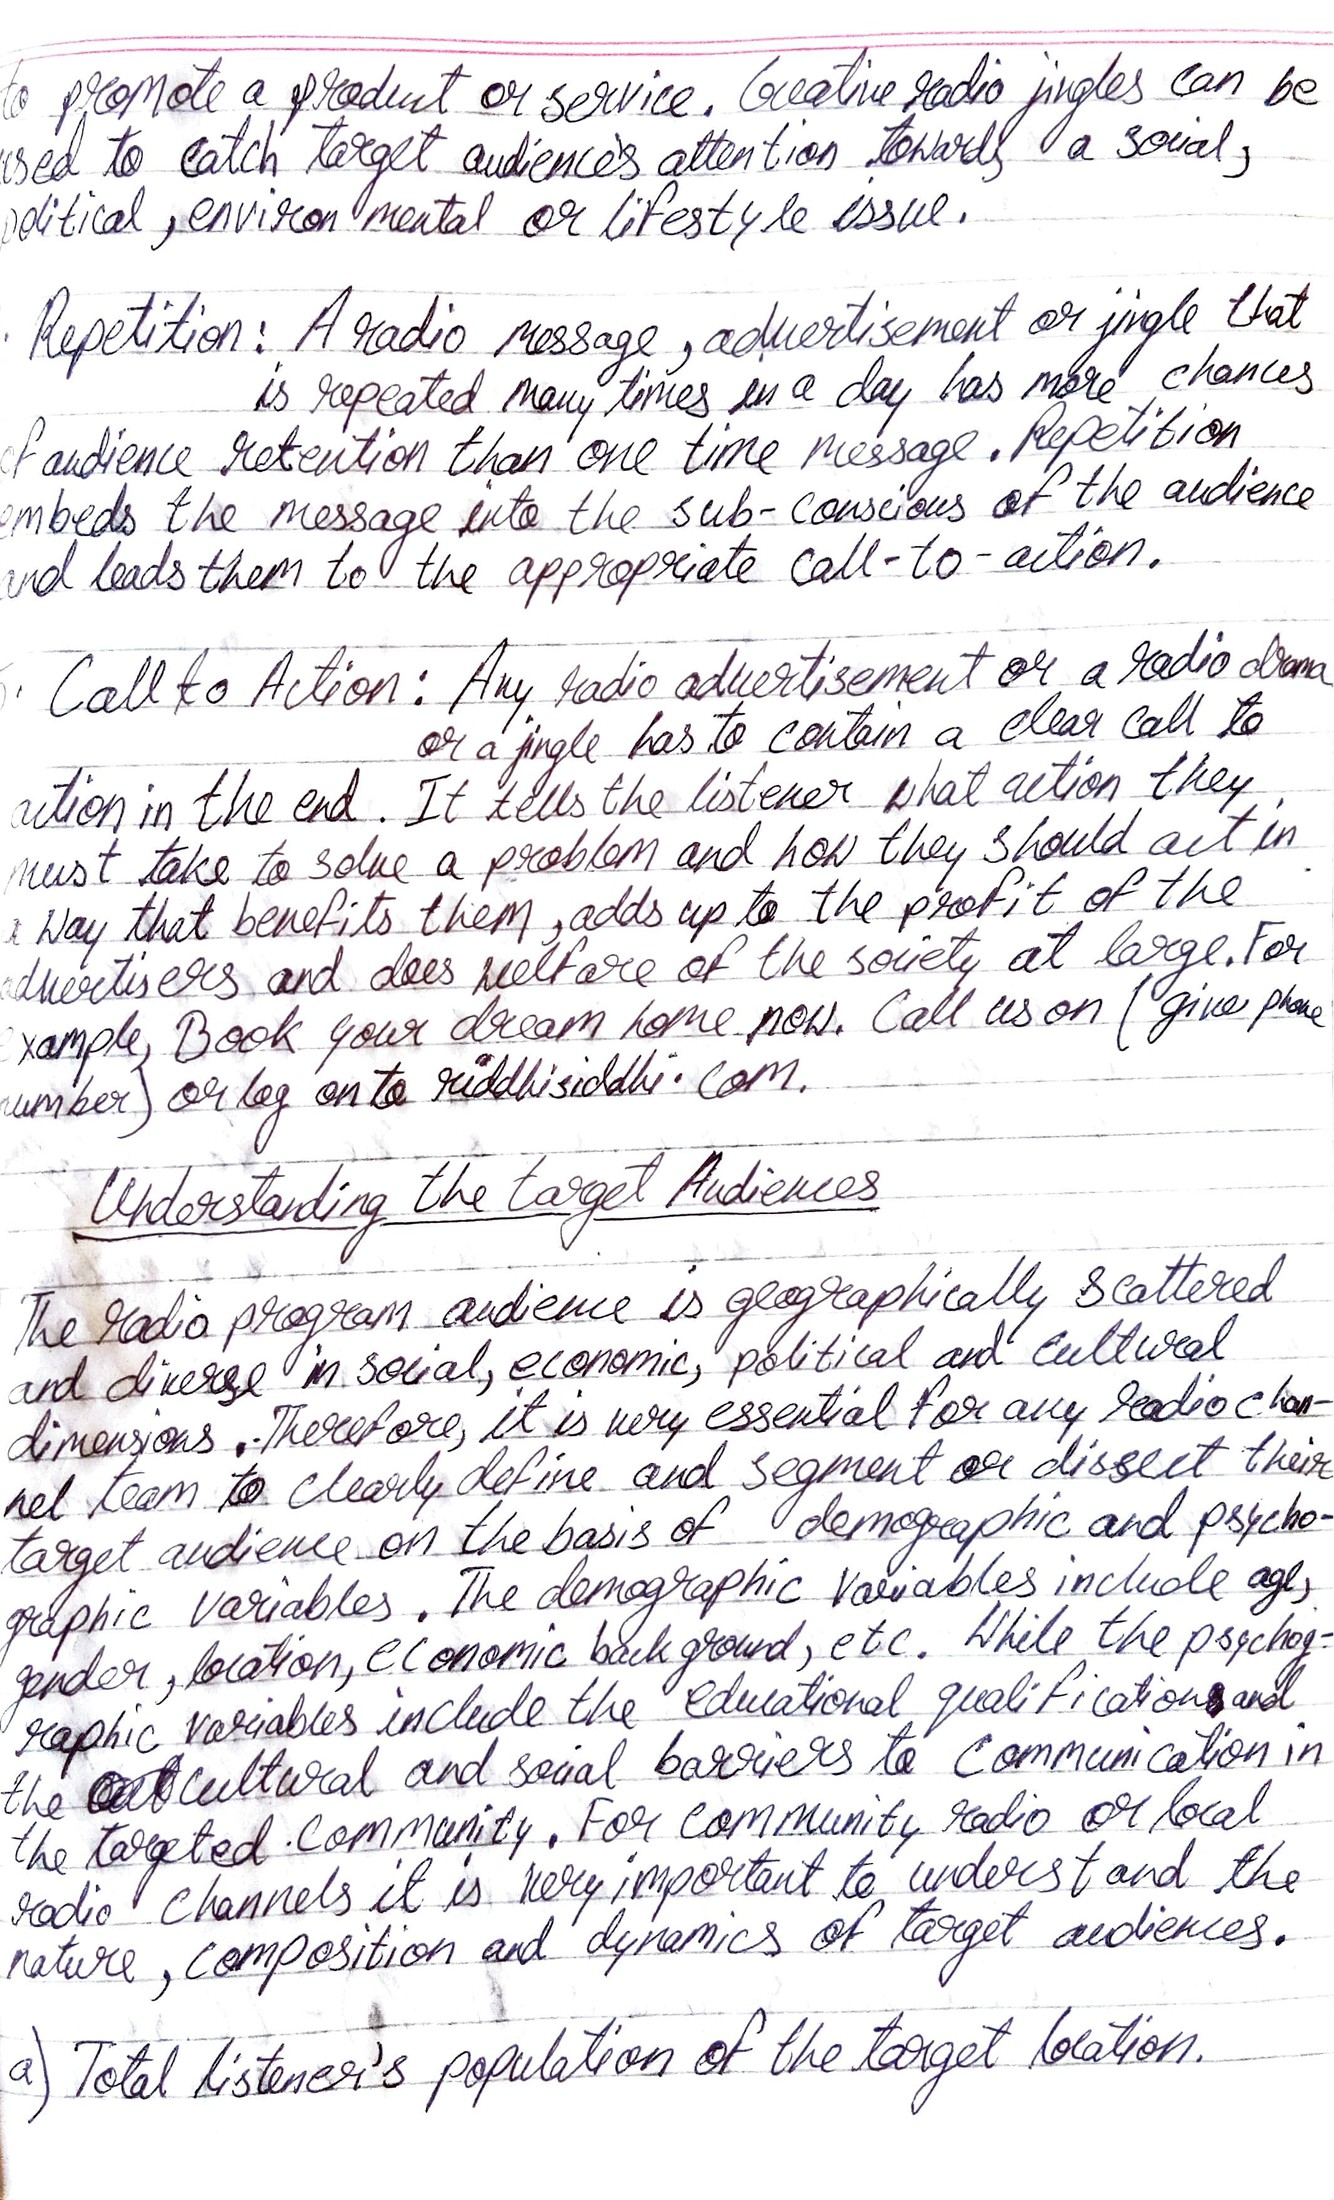 to promote a product or service. Creative radio jingles can be
used to catch target audience's attention towards a social,
political, environmental or lifestyle issue.
. Repetition: A radio message, advertisement or jingle that
is repeated many times in a day has more chances
of audience retention than one time message. Repetition
embeds the message into the sub-conscious of the audience
and leads them to the appropriate call-to-action.
. Call to Action: Any radio advertisement or a radio drama
or a jingle has to contain a clear call to
action in the end. It tells the listener what action they
must take to solve a problem and how they should act in
a way that benefits them, adds up to the profit of the
advertisers and does welfare of the society at large. For
example, Book your dream home now. Call us on (give phone
number) or log on to riddhisiddhi.com.
Understanding the target Audiences
The radio program audience is geographically scattered
and diverse in social, economic, political and cultural
dimensions. Therefore, it is very essential for any radio chan-
nel team to clearly define and segment or dissect their
target audience on the basis of demographic and psycho-
graphic variables. The demographic variables include age,
gender, location, economic background, etc. While the psychog-
raphic variables include the educational qualifications and
the cultural and social barriers to communication in
the targeted community. For community radio or local
radio channels it is very important to understand the
nature, composition and dynamics of target audiences.
a) Total listener's population of the target location.